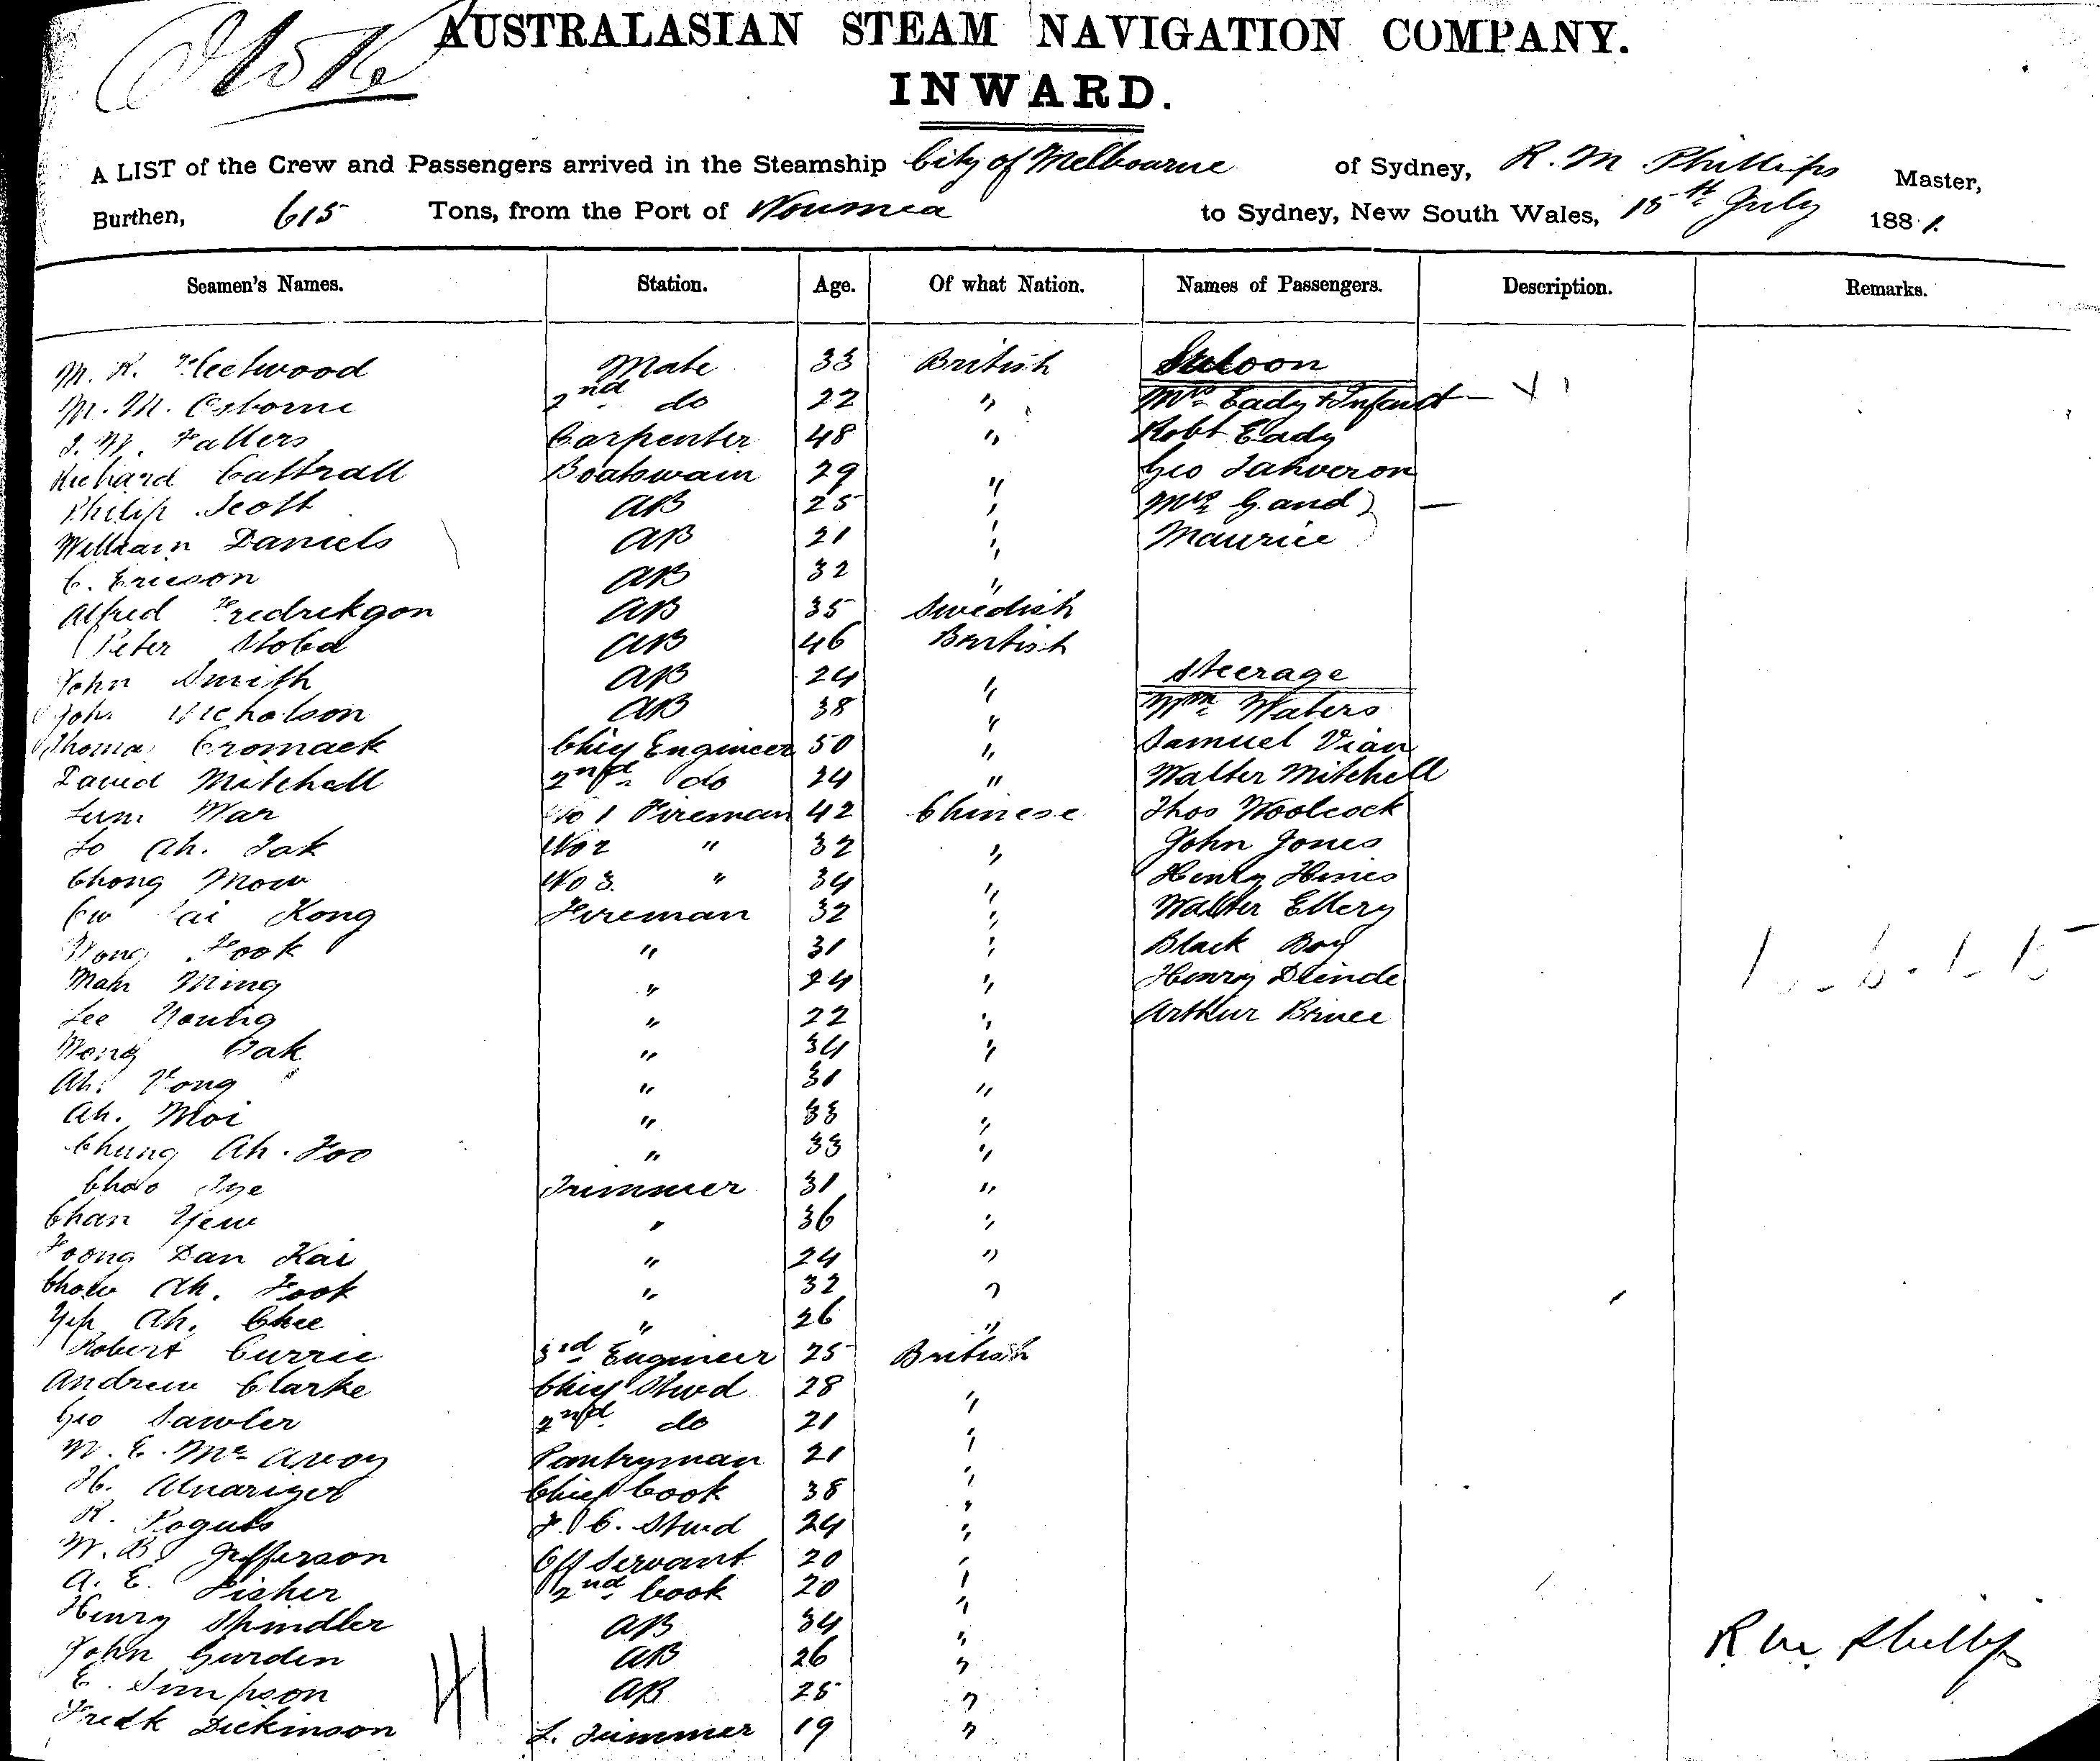 AUSTRALASIAN STEAM NAVIGATION COMPANY.
INWARD.
A LIST of the Crew and Passengers arrived in the Steamship City of Melbourne of Sydney, R. M. Phillips Master,
Burthen, 615 Tons, from the Port of Noumea to Sydney, New South Wales, 15th July 1881.
Seamen's Names. Station. Age. Of what Nation. Names of Passengers. Description. Remarks.
M. R. Fleetwood Mate 33 British Saloon
M. M. Osborne 2nd do 22 " Mrs Eady & Infant
Carpenter 48 " Robt Eady
Richard Cattrall Boatswain 29 " Geo
Philip Scott AB 25 " Mrs G. and
William Daniels AB 21 " Maurice
C. Ericson AB 32 "
Alfred Fredrikson AB 35 Swedish
Peter AB 46 British
John Smith AB 24 " Steerage
John Nicholson AB 38 " Wm Waters
Thomas Cromack Chief Engineer 50 " Samuel Vian
David Mitchell 2nd do 24 " Walter Mitchell
War No 1 Fireman 42 Chinese Thos Woolcock
Ah. No 2 " 32 " John Jones
Chong Mow No 3 " 34 " Henry Hines
Kong Fireman 32 " Walter Ellery
Wong Fook " 31 " Black Boy
Mah Ming " 24 " Henry
Lee Young " 22 " Arthur Bruce
Wong " 34 "
Ah. " 31 "
Ah. Moi " 33 "
Chung Ah. Foo " 33 "
Trimmer 31 "
Chan Yew " 36 "
Foong Dan Kai " 24 "
Chow Ah. Fook " 32 "
Yip Ah. Chee " 26 "
Robert Currie 3rd Engineer 25 British
Andrew Clarke Chief Stwd 28 "
Geo Sawler 2nd do 21 "
W. E. McAvoy Pantryman 21 "
H. Chief Cook 38 "
R. F. C. Stwd 24 "
W. B. Jefferson Off Servant 20 "
A. E. Fisher 2nd Cook 20 "
Henry Spindler AB 34 "
John Gurden AB 26 "
E. Simpson AB 25 "
Fredk Dickinson L. Trimmer 19 "
R. M. Phillips